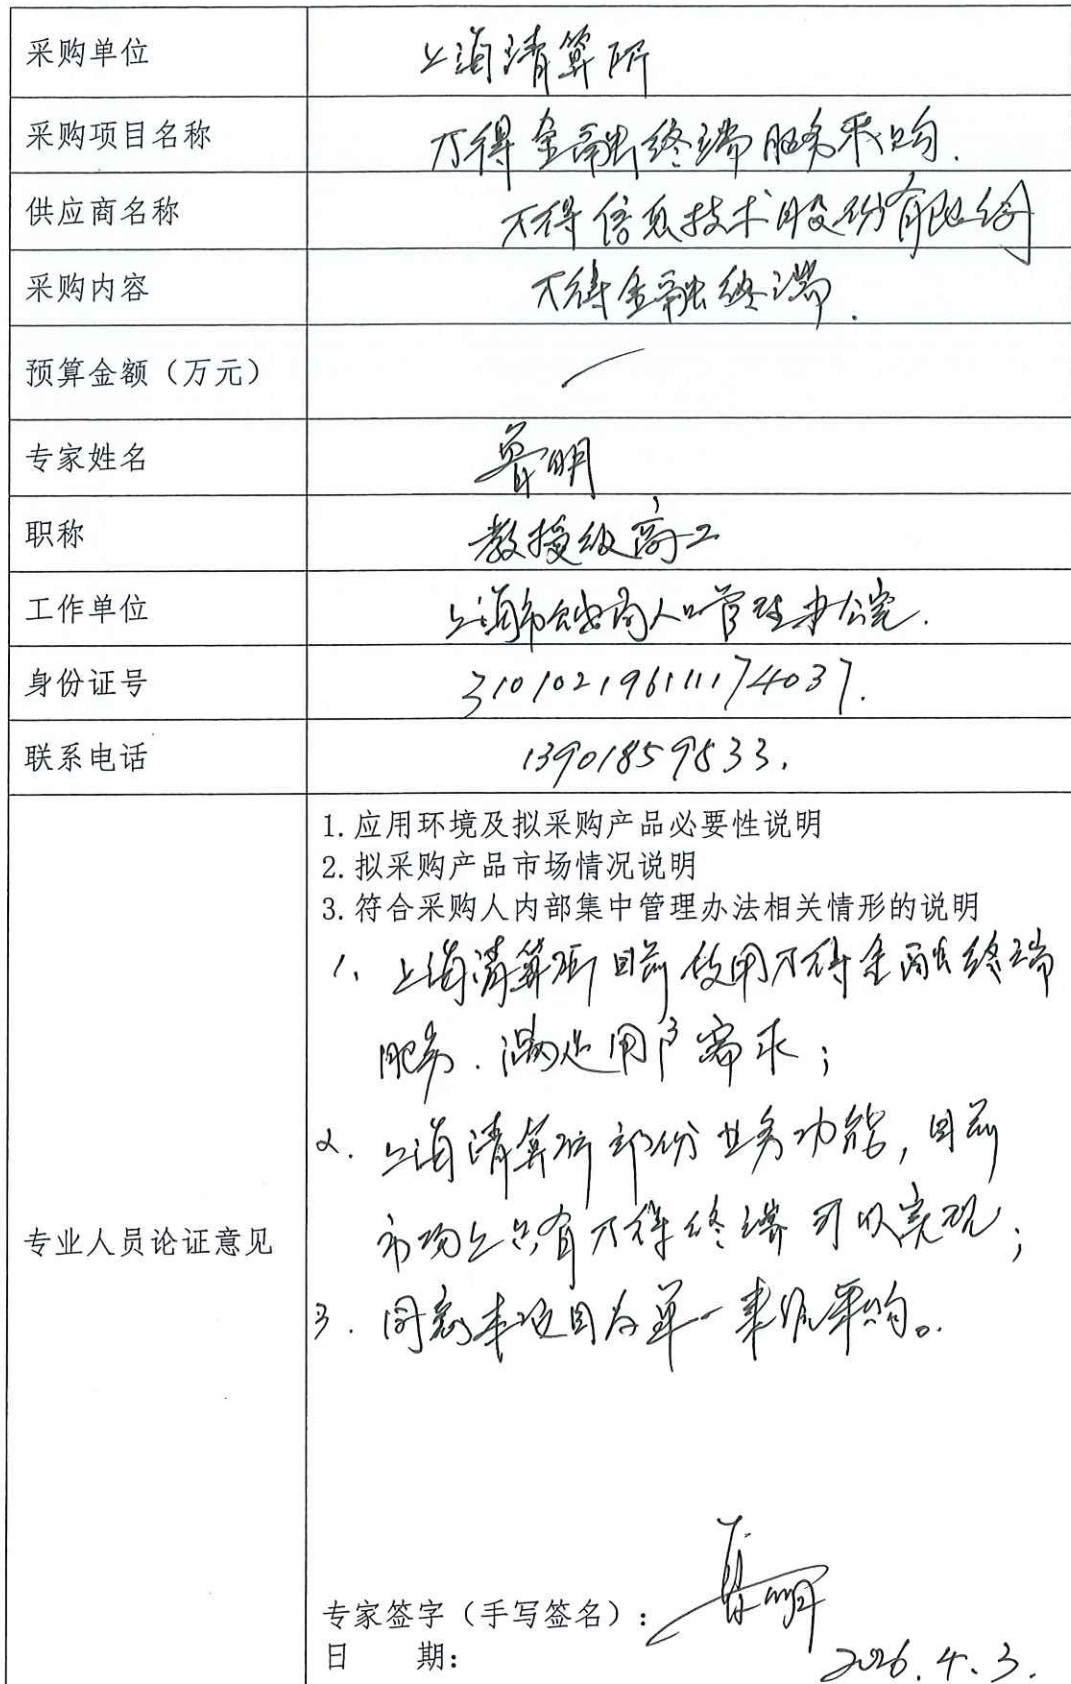 采购单位 上海清算所
采购项目名称 万得金融终端服务采购.
供应商名称 万得信息技术股份有限公司
采购内容 万得金融终端.
预算金额（万元） /
专家姓名 明
职称 教授级高工
工作单位 上海市人口管理办公室.
身份证号 310102196111174037.
联系电话 13901859533.
专业人员论证意见
1.应用环境及拟采购产品必要性说明
2.拟采购产品市场情况说明
3.符合采购人内部集中管理办法相关情形的说明
1、上海清算所目前使用万得金融终端
服务.满足用户需求；
2.上海清算所部份业务功能，目前
市场上只有万得终端可以实现；
3.同意本项目为单一来源采购。
专家签字（手写签名）： 明
日　　期： 2026.4.3.